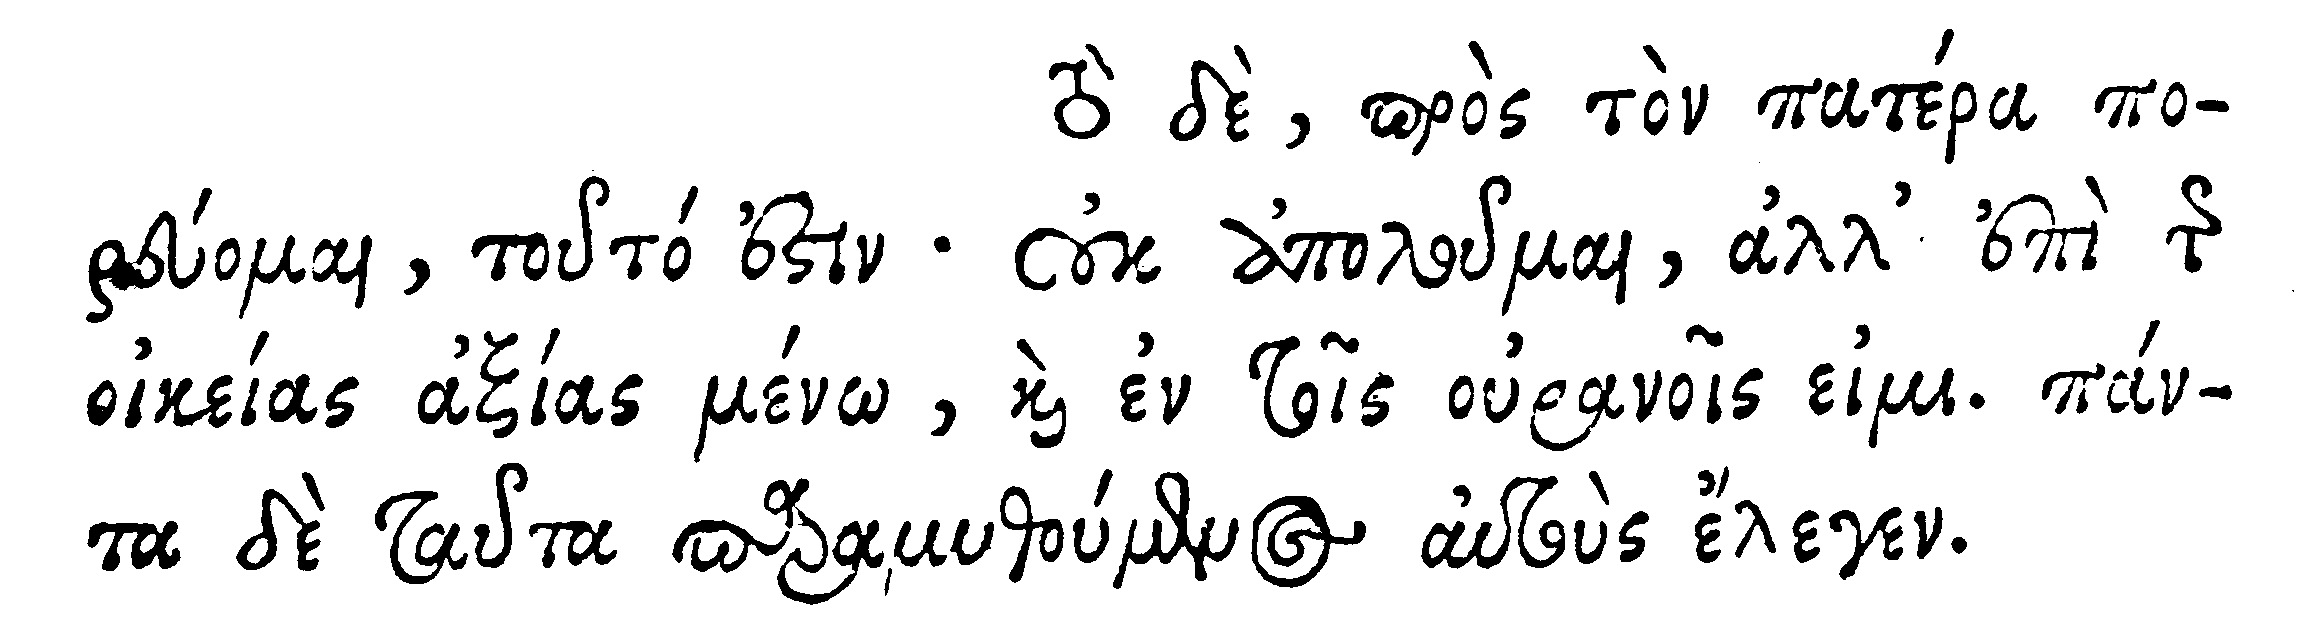 Τὸ δὲ, πρὸς τὸν πατέρα πο-
ρεύομαι, τουτό ἐστιν · οὐκ ἀπολοῦμαι, ἀλλ' ἐπὶ τῆς
οἰκείας ἀξίας μένω, καὶ ἐν τοῖς οὐρανοῖς εἰμι. πάν-
τα δὲ ταῦτα παραμυθούμενος αὐτοὺς ἔλεγεν.